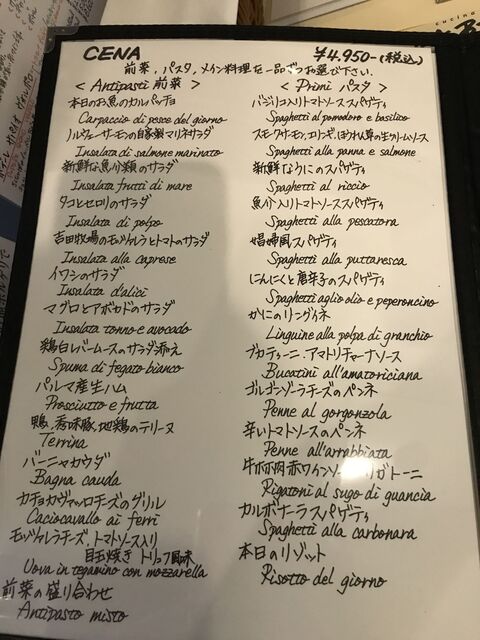 CENA
¥4,950-(税込)
前菜、パスタ、メイン料理を一品ずつお選び下さい.
< Antipasti 前菜 >
本日のお魚のカルパッチョ
Carpaccio di pesce del giorno
ノルウェーサーモンの自家製マリネサラダ
Insalata di salmone marinato
新鮮な魚介類のサラダ
Insalata frutti di mare
タコとセロリのサラダ
Insalata di polpo
吉田牧場のモッツァレラとトマトのサラダ
Insalata alla caprese
イワシのサラダ
Insalata d'alici
マグロとアボカドのサラダ
Insalata tonno e avocado
鶏白レバームースのサラダ添え
Spuma di fegato bianco
パルマ産生ハム
Prosciutto e frutta
鴨、香味豚、地鶏のテリーヌ
Terrina
バーニャカウダ
Bagna cauda
カチョカヴァッロチーズのグリル
Caciocavallo ai ferri
モッツァレラチーズ、トマトソース入り
目玉焼き トリュフ風味
Uova in tegamino con mozzarella
前菜の盛り合わせ
Antipasto misto
< Primi パスタ >
バジリコ入りトマトソーススパゲティ
Spaghetti al pomodoro e basilico
スモークサーモン、エリンギ、ほうれん草の生クリームソース
Spaghetti alla panna e salmone
新鮮なうにのスパゲティ
Spaghetti al riccio
魚介入りトマトソーススパゲティ
Spaghetti alla pescatora
娼婦風スパゲティ
Spaghetti alla puttaresca
にんにくと唐辛子のスパゲティ
Spaghetti aglio olio e peperoncino
かにのリングイネ
Linguine alla polpa di granchio
ブカティーニ アマトリチャーナソース
Bucatini all'amatoriciana
ゴルゴンゾーラチーズのペンネ
Penne al gorgonzola
辛いトマトソースのペンネ
Penne all'arrabbiata
牛ホホ肉赤ワインソース リガトーニ
Rigatoni al sugo di guancia
カルボナーラスパゲティ
Spaghetti alla carbonara
本日のリゾット
Risotto del giorno